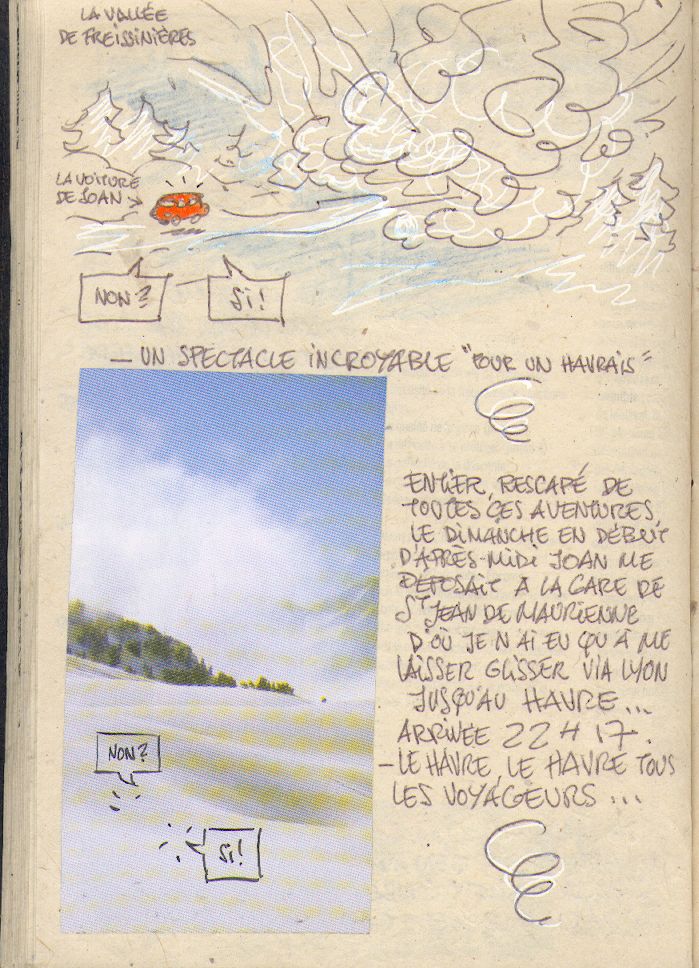 LA VALLÉE
DE FREISSINIÈRES
LA VOITURE
DE JOAN →
NON?
SI!
— UN SPECTACLE INCROYABLE "POUR UN HAVRAIS"
ENTIER, RESCAPÉ DE
TOUTES CES AVENTURES,
LE DIMANCHE EN DÉBUT
D'APRÈS-MIDI JOAN ME
DÉPOSAIT À LA GARE DE
ST JEAN DE MAURIENNE
D'OÙ JE N'AI EU QU'À ME
LAISSER GLISSER VIA LYON
JUSQU'AU HAVRE...
ARRIVÉE 22H17.
— LE HAVRE, LE HAVRE TOUS
LES VOYAGEURS...
NON?
SI!